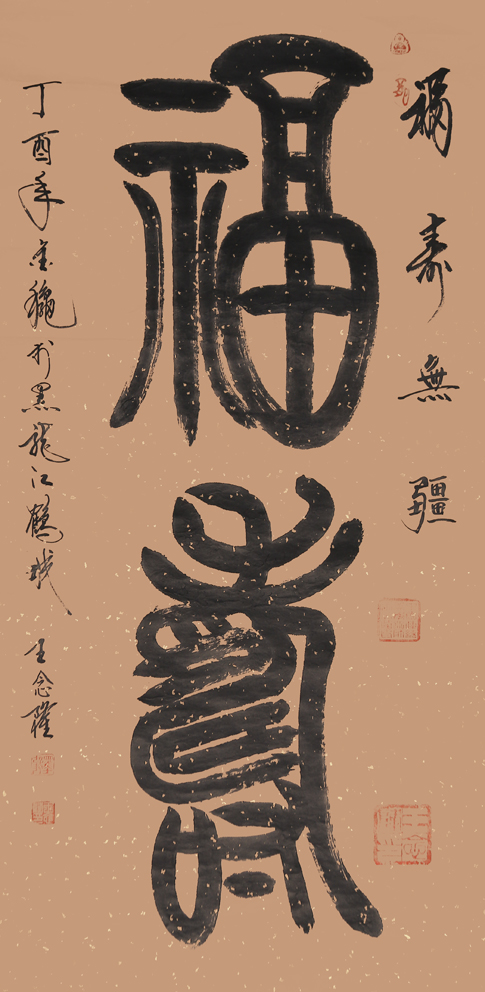 福壽無疆
福壽
丁酉年金秋於黑龍江鶴城
王念